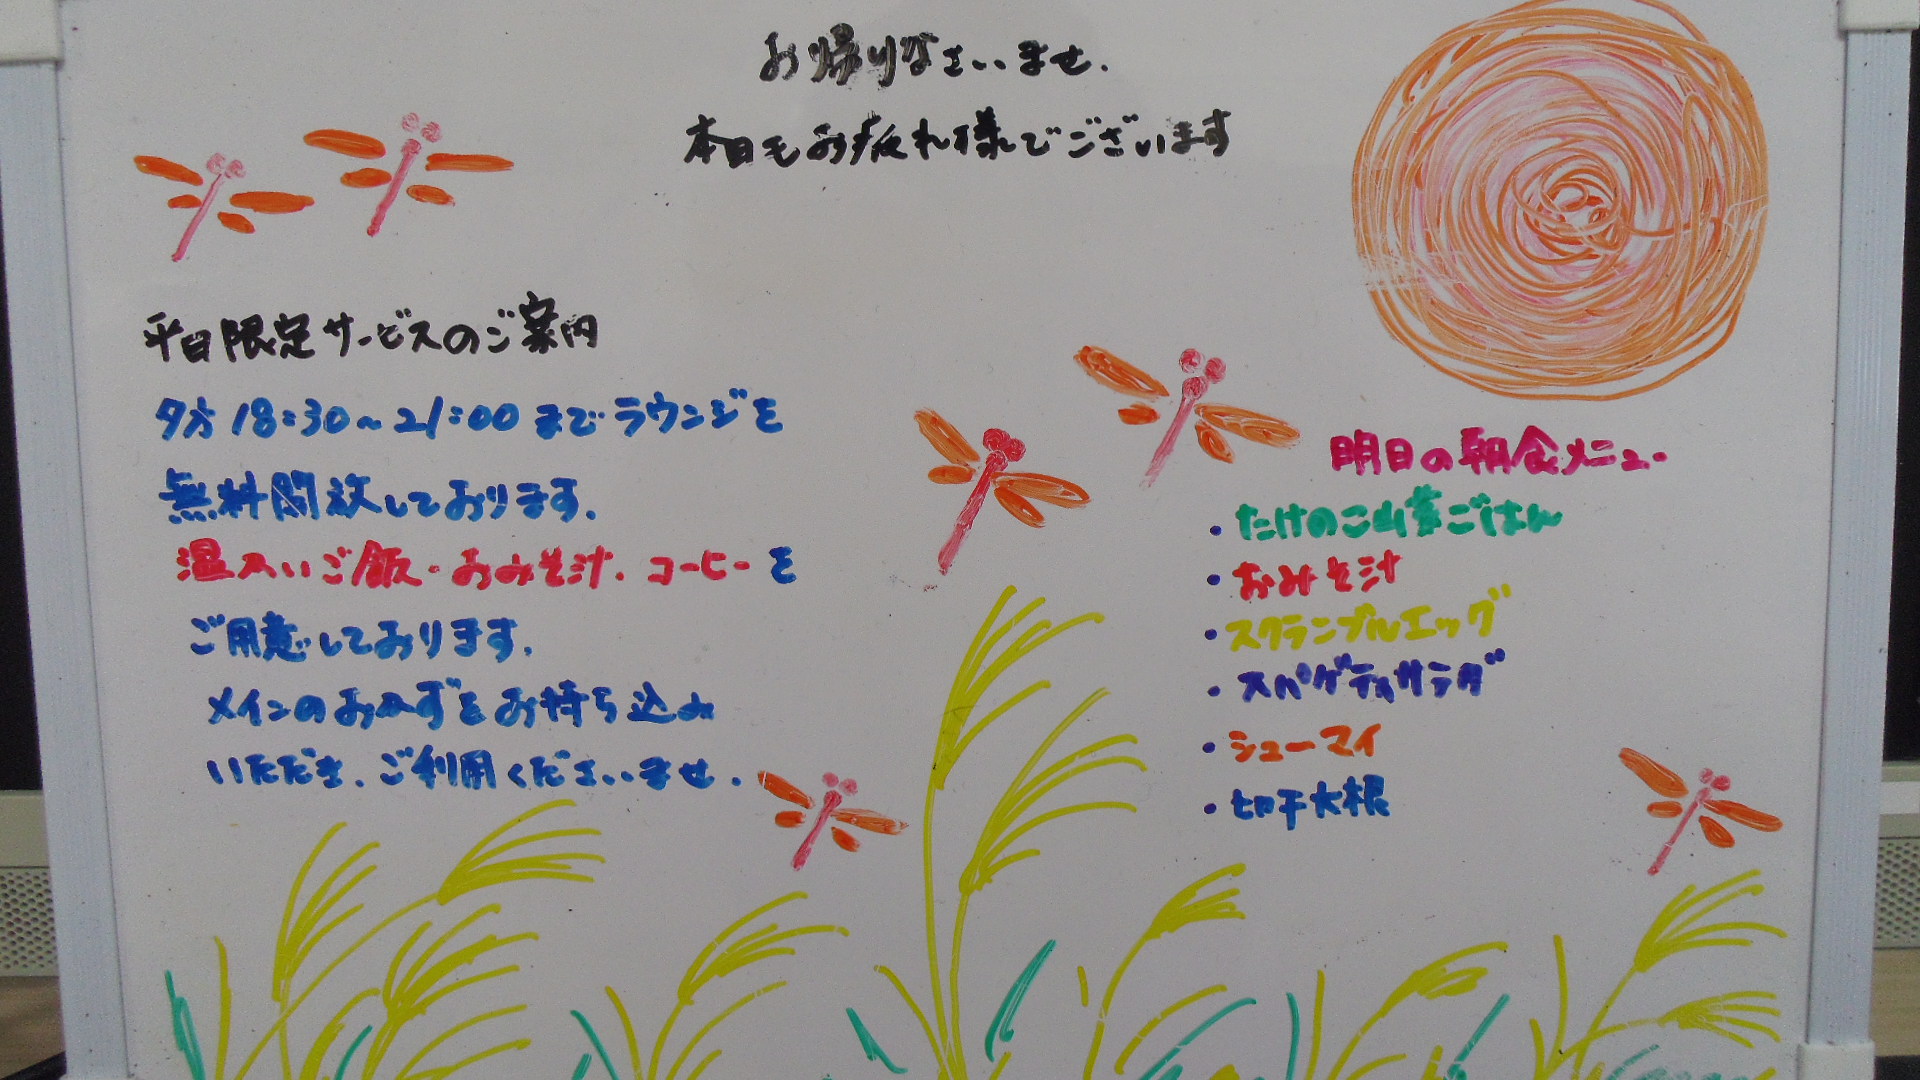 お帰りなさいませ.
本日もお疲れ様でございます
平日限定サービスのご案内
夕方18:30~21:00までラウンジを
無料開放しております.
温かいご飯・おみそ汁.コーヒーを
ご用意しております.
メインのおかずをお持ち込み
いただき.ご利用くださいませ.
明日の朝食メニュー
・たけのこ山菜ごはん
・おみそ汁
・スクランブルエッグ
・スパゲティサラダ
・シューマイ
・切干大根